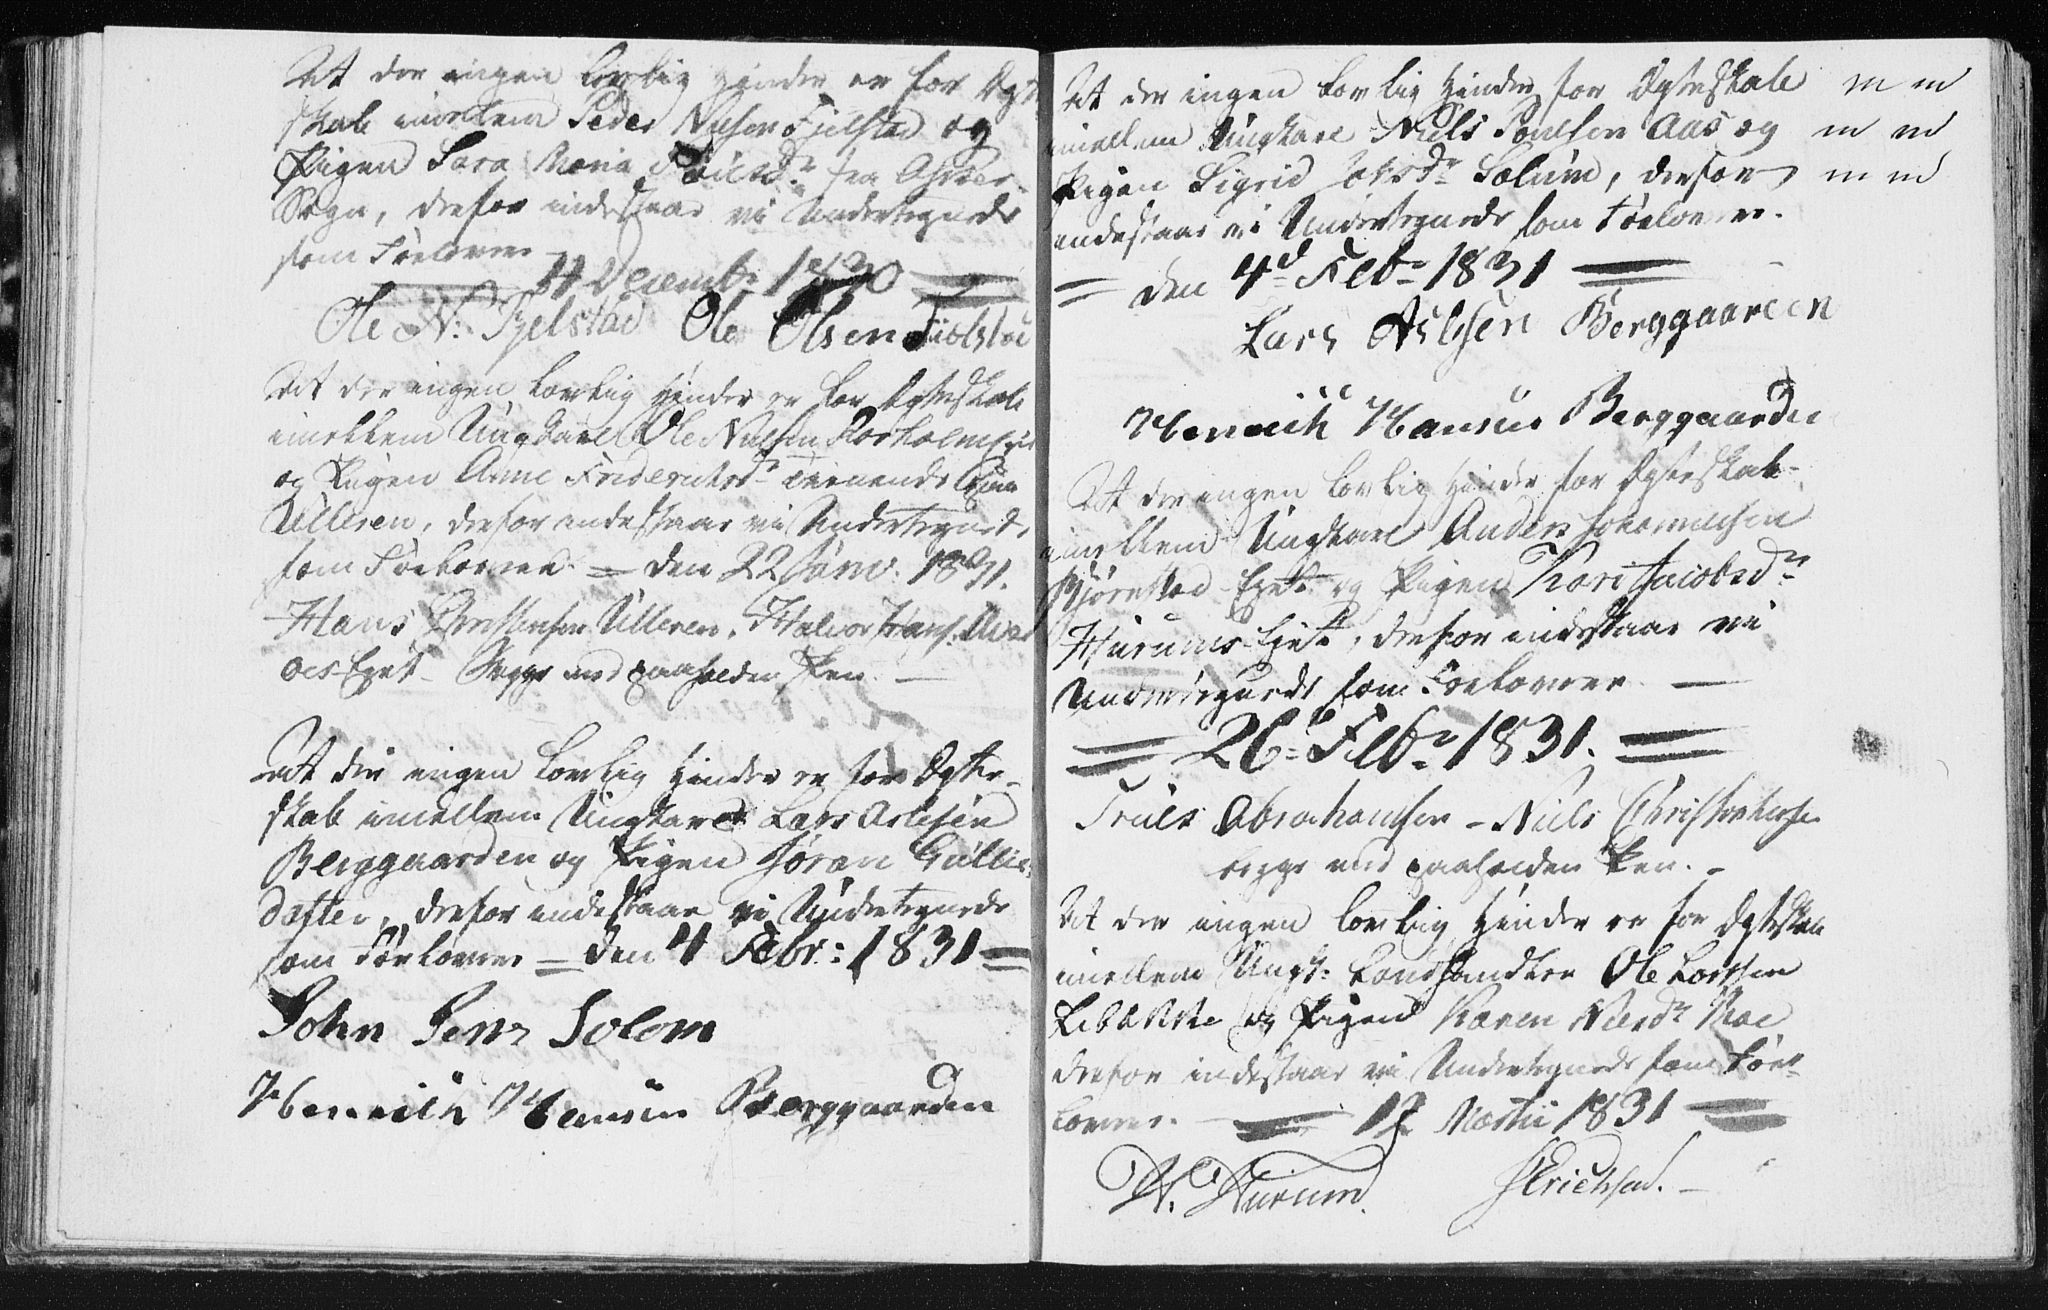 At der ingen lovlig Hinder er for Ægte
skab imellem Peder Nielsen Fjelstad og
Pigen Sara Maria fra Asker
Sogn, derfor indestaar vi Undertegnede
som Forlovere
4 Decembr 1830
Ole N: Fjelstad Ole Olsen
At der ingen lovlig Hinder er for Ægteskab
imellem Ungkarl Ole Nielsen
og Pigen Anne Fridrichsdr tienende
Ulleren, derfor indestaar vi Undertegnede
som Forlovere = den 22 Janv. 1831.
Hans Christensen Ulleren, Halvor
Eyet - Begge med paaholden Pen
At der ingen lovlig Hinder er for Ægte-
skab imellem Ungkarl Lars Aslesen
Berggaarden og Pigen Jøran
datter, derfor indestaar vi Undertegnede
som Forlovere = den 4 Febr: 1831 =
John Jens Solom
Henrich Hansen Berggaarden
At der ingen lovlig Hinder for Ægteskab m m
imellem Ungkarl Niels Poulsen Aas og m m
Pigen Sigrid Solum, derfor m m
indestaar vi Undertegnede som Forlovere.
= den 4d Febr 1831 =
Lars Aslesen Berggaarden
Henrich Hansen Berggaarden
At der ingen lovlig Hinder for Ægteskab-
imellem Ungkarl Anders Johannesen
Bjørnstad Eyet og Pigen Kari Jacobsdr
Hurums Eyet, derfor indestaar vi
Undertegnede som Forlovere
= 26 = Febr 1831. =
Truls Abrahamsen - Niels Christophersen
begge med paaholden Pen. -
At der ingen lovlig Hinder er for Ægteskab
imellem Ungk: Landhandler Ole Larssen
og Pigen Karen Nielsdr Moe
derfor indestaar vi Undertegnede som For-
lovere. = 12 Martii 1831 =
H. Hurum. Erichsen. -